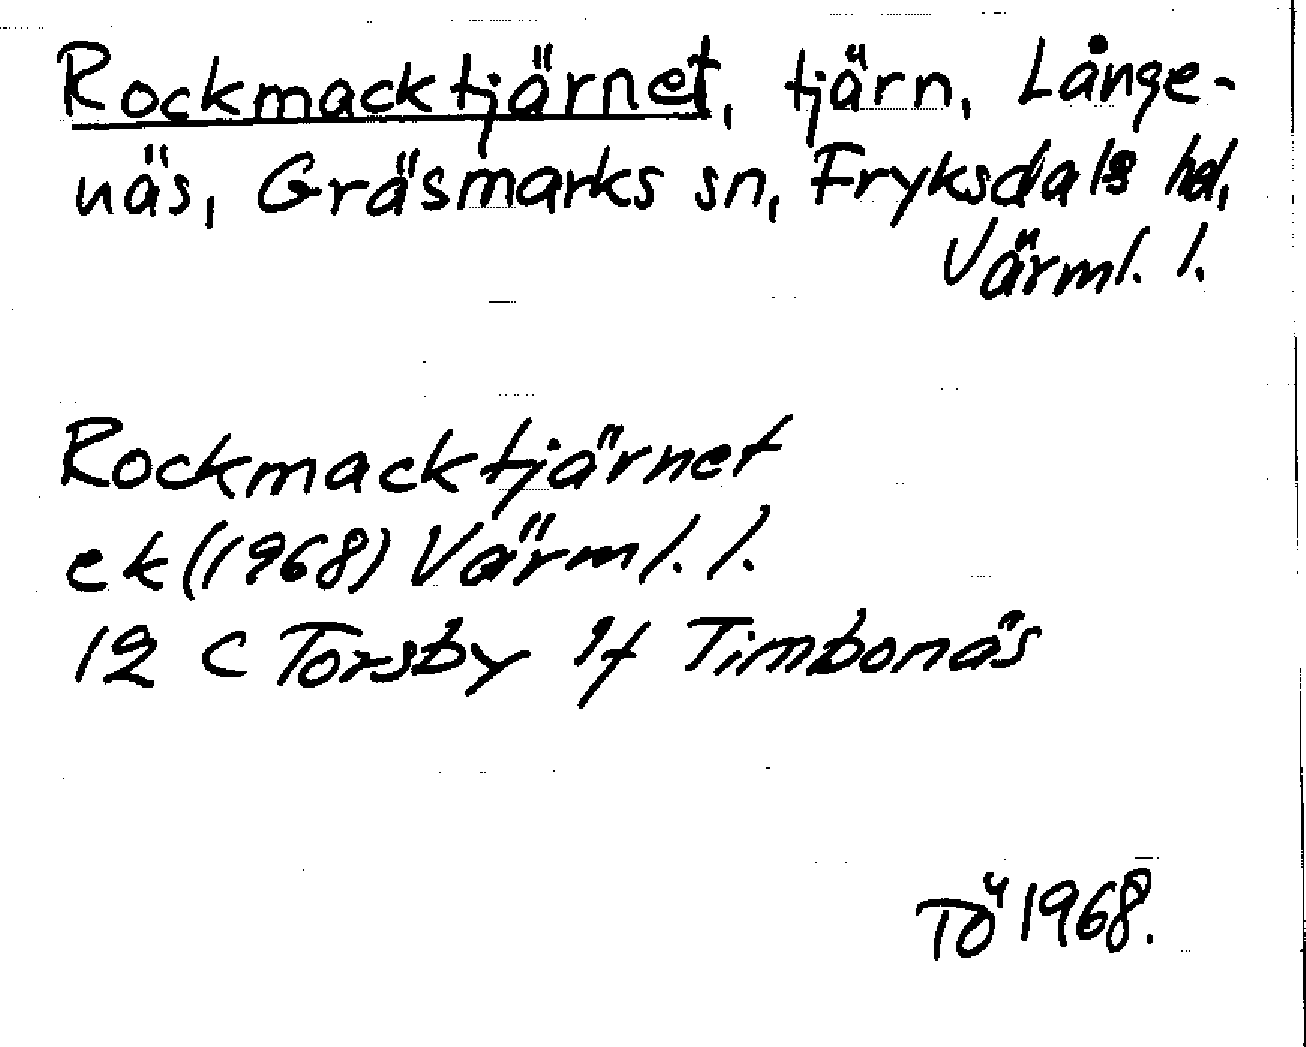 Rockmacktjärnet, tjärn, Långe-
näs, Gräsmarks sn, Fryksdals hd,
Värml. l.
Rockmacktjärnet
ek (1968) Värml. l.
12 C Torsby 1f Timbonäs
Tö 1968.